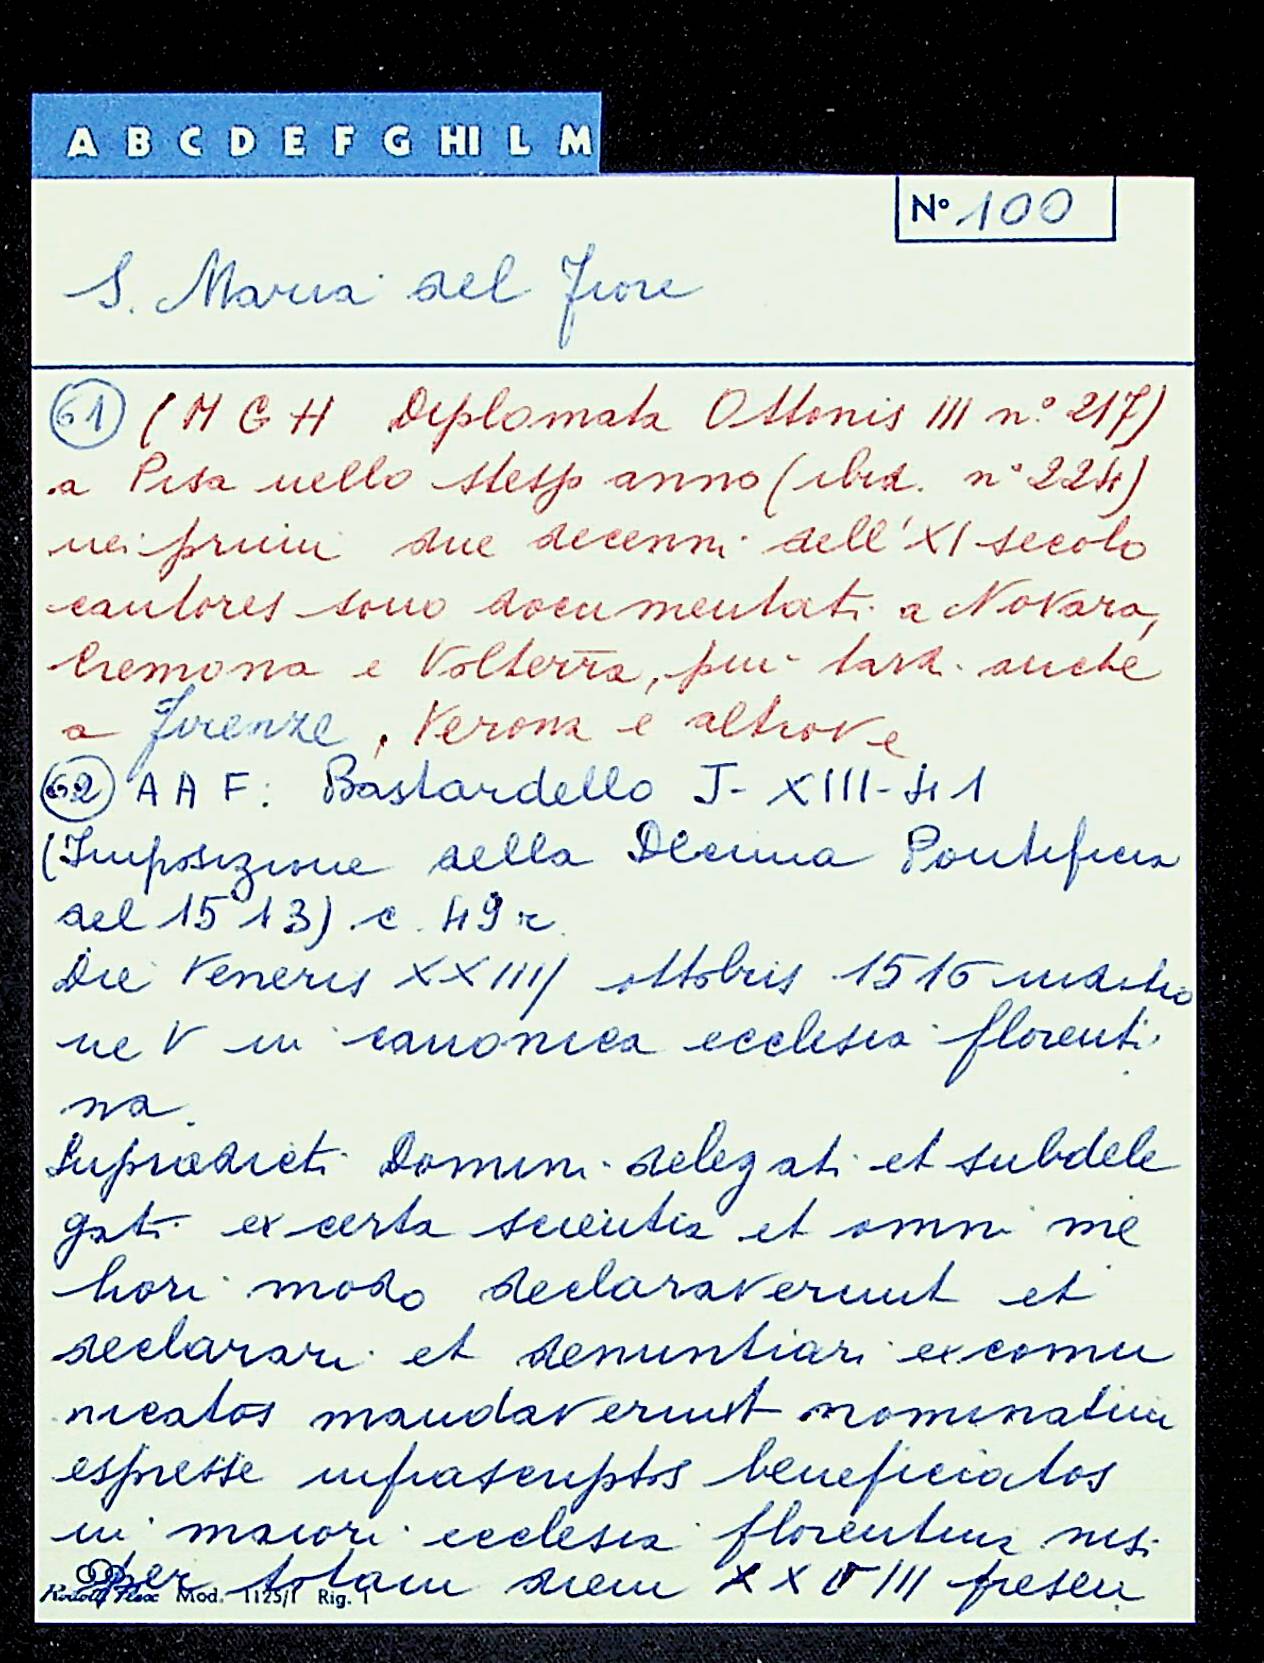 A B C D E F G HI L M
N° 100
S. Maria del Fiore
61 (M G H Diplomata Ottonis III n.° 217)
a Pisa nello stesso anno (ibid. n° 224)
nei primi due decenni dell'XI secolo
cantores sono documentati a Novara,
Cremona e Volterra, più tardi anche
a Firenze, Verona e altrove
62 A A F: Bastardello J- XIII-41
(Imposizione della Decima Pontificia
del 1513) c. 49 r.
Die Veneris XXIIII ottobris 1516 indictio
ne V in canonica ecclesia florenti
na.
Supradicti Domini delegati et subdele
gati ex certa scientia et omni me
liori modo declaraverunt et
declarari et denuntiari excomu
nicatos mandaverunt nominatim
espresse infrascriptos beneficiatos
in maiori ecclesia florentina nisi
per totam diem XXVIII presen
Mod. 1125/1 Rig. 1